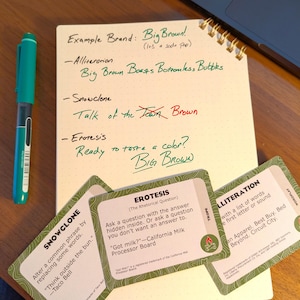 Example Brand: BigBrown!
(its a soda pop)
- Alliteration
Big Brown Boasts Bottomless Bubbles
- Snowclone
Talk of the Town Brown
- Erotesis
Ready to taste a color?
Big Brown
SNOWCLONE
Alter a common phrase by
replacing some words.
"Think outside the bun."
—Taco Bell
EROTESIS
(The Rhetorical Question)
Ask a question with the answer
hidden inside. Or ask a question
you don't want an answer to.
"Got milk?"—California Milk
Processor Board
ALLITERATION
with a list of words
first letter or sound
Apparel, Best Buy, Bed
Beyond, Circuit City